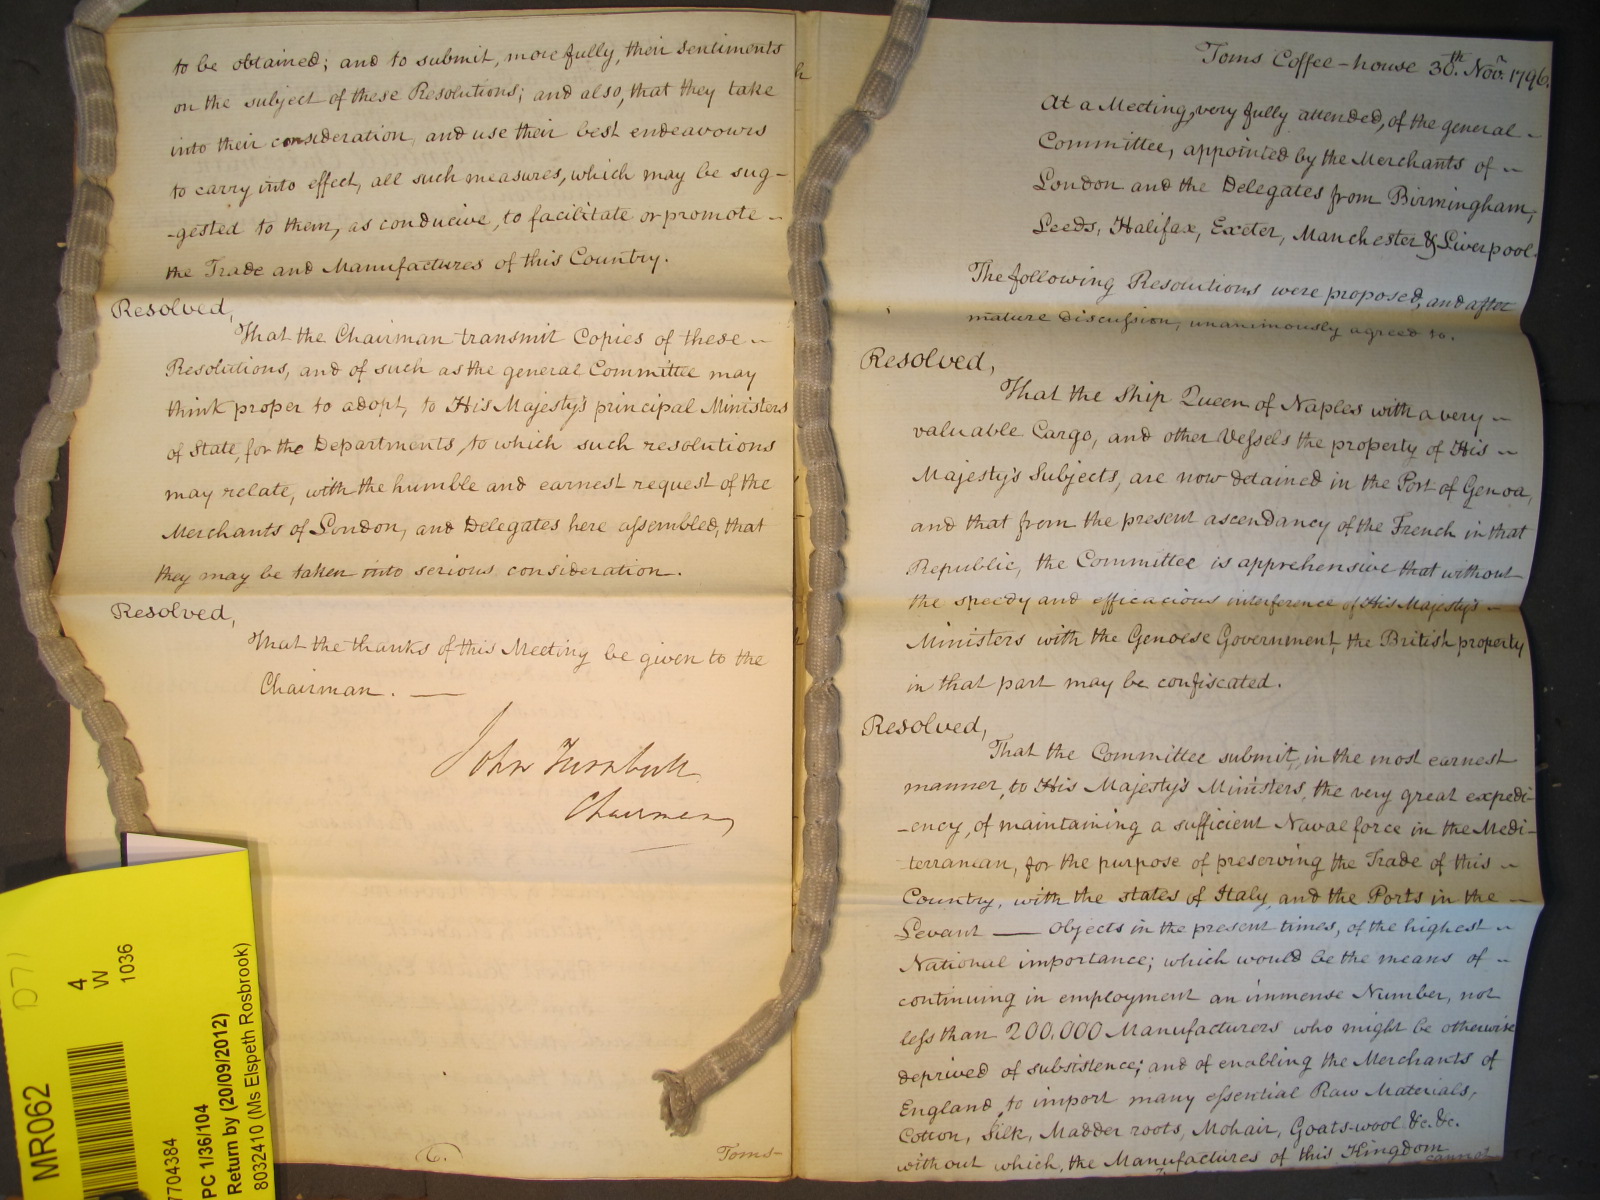 to be obtained; and to submit, more fully, their sentiments
on the subject of these Resolutions; and also, that they take
into their consideration, and use their best endeavours
to carry into effect, all such measures, which may be sug-
-gested to them, as conducive, to facilitate or promote -
the Trade and Manufactures of this Country.
Resolved,
That the Chairman transmit Copies of these -
Resolutions, and of such as the general Committee may
think proper to adopt, to His Majesty's principal Ministers
of State, for the Departments, to which such resolutions
may relate, with the humble and earnest request of the
Merchants of London, and Delegates here assembled, that
they may be taken into serious consideration.
Resolved,
That the thanks of this Meeting be given to the
Chairman. —
John Turnbull
Chairman
(6.)
Toms-
Toms Coffee-house 30th. Novr. 1796.
At a Meeting, very fully attended, of the general -
Committee, appointed by the Merchants of -
London and the Delegates from Birmingham,
Leeds, Halifax, Exeter, Manchester & Liverpool.
The following Resolutions were proposed, and after
mature discussion, unanimously agreed to.
Resolved,
That the Ship Queen of Naples with a very -
valuable Cargo, and other Vessels the property of His -
Majesty's Subjects, are now detained in the Port of Genoa,
and that from the present ascendancy of the French in that
Republic, the Committee is apprehensive that without
the speedy and efficacious interference of His Majesty's -
Ministers with the Genoese Government, the British property
in that part may be confiscated.
Resolved,
That the Committee submit, in the most earnest
manner, to His Majesty's Ministers, the very great expedi-
-ency, of maintaining a sufficient Naval force in the Medi-
terranean, for the purpose of preserving the Trade of this -
Country, with the states of Italy, and the Ports in the -
Levant — Objects in the present times, of the highest -
National importance; which would be the means of -
continuing in employment an immense Number, not
less than 200,000 Manufacturers who might be otherwise
deprived of subsistence; and of enabling the Merchants of
England, to import many essential Raw Materials,
Cotton, Silk, Madder roots, Mohair, Goats-wool &c. &c.
without which, the Manufactures of this Kingdom
cannot
D71
4
W
1036
MR062
7704384
PC 1/36/104
Return by (20/09/2012)
8032410 (Ms Elspeth Rosbrook)